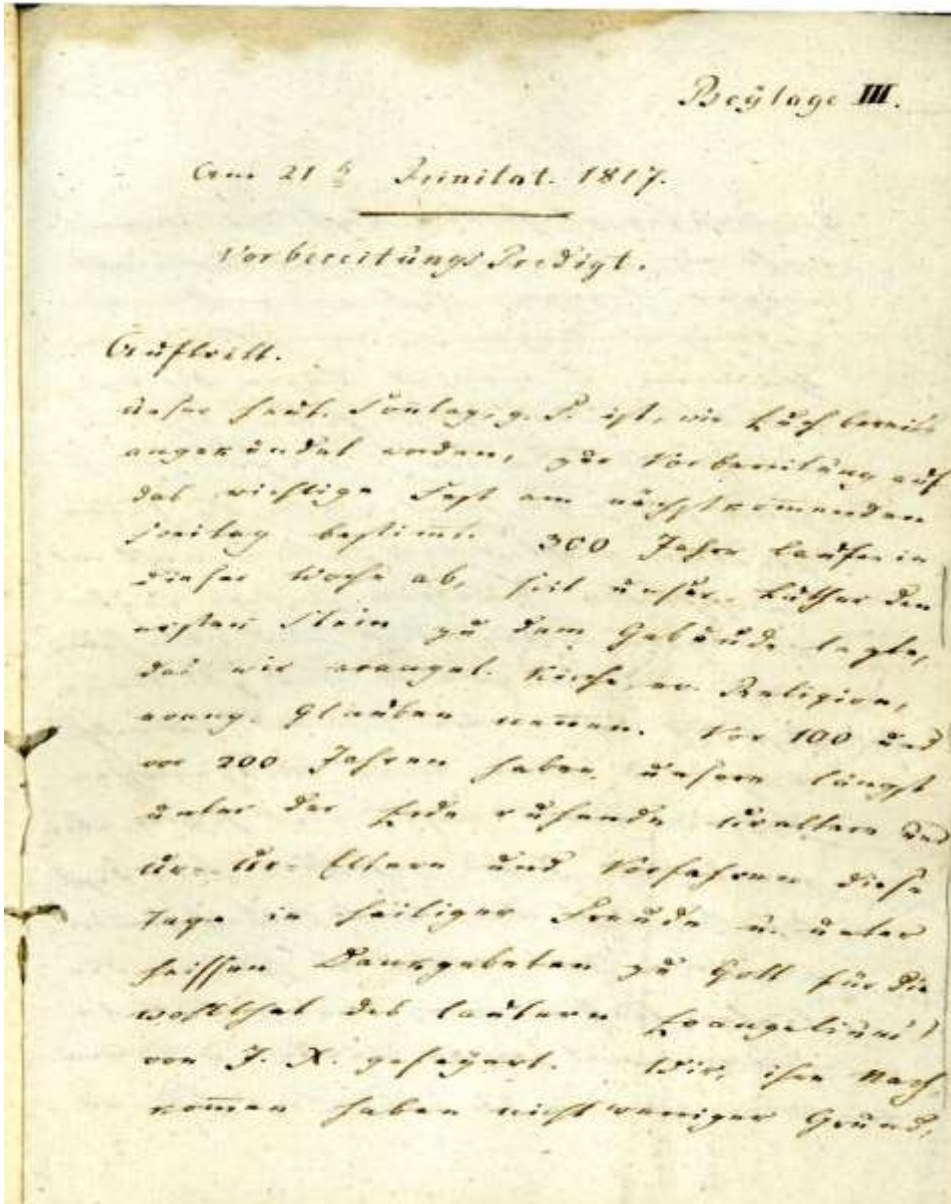 Beÿlage III.
Am 21t Trinitat. 1817.
Vorbereitungs Predigt.
Auftritt.
Unser heut. Soñtag, g. F. ist, wie Euch bereits
angekündet worden, zur Vorbereitung auf
das wichtige Fest am nächstkom̅enden
Freitag bestim̅t. 300 Jahre laufen in
dieser Woche ab, seit unser Luther den
ersten Stein zu dem Gebäude legte,
das wir evangel. Kirche, ev. Religion,
evang. Glauben neñen. Vor 100 und
vor 200 Jahren haben unsere längst
unter der Erde ruhende Ureltern und
Ur-Ur-Eltern und Vorfahren diese
Tage in heiliger Freude u. unter
heissen Dankgebeten zu Gott für die
Wohlthat des lautern Evangeliums
von J. X. gefeyert. Wir, ihre Nach
kom̅en haben nicht weniger Grund,